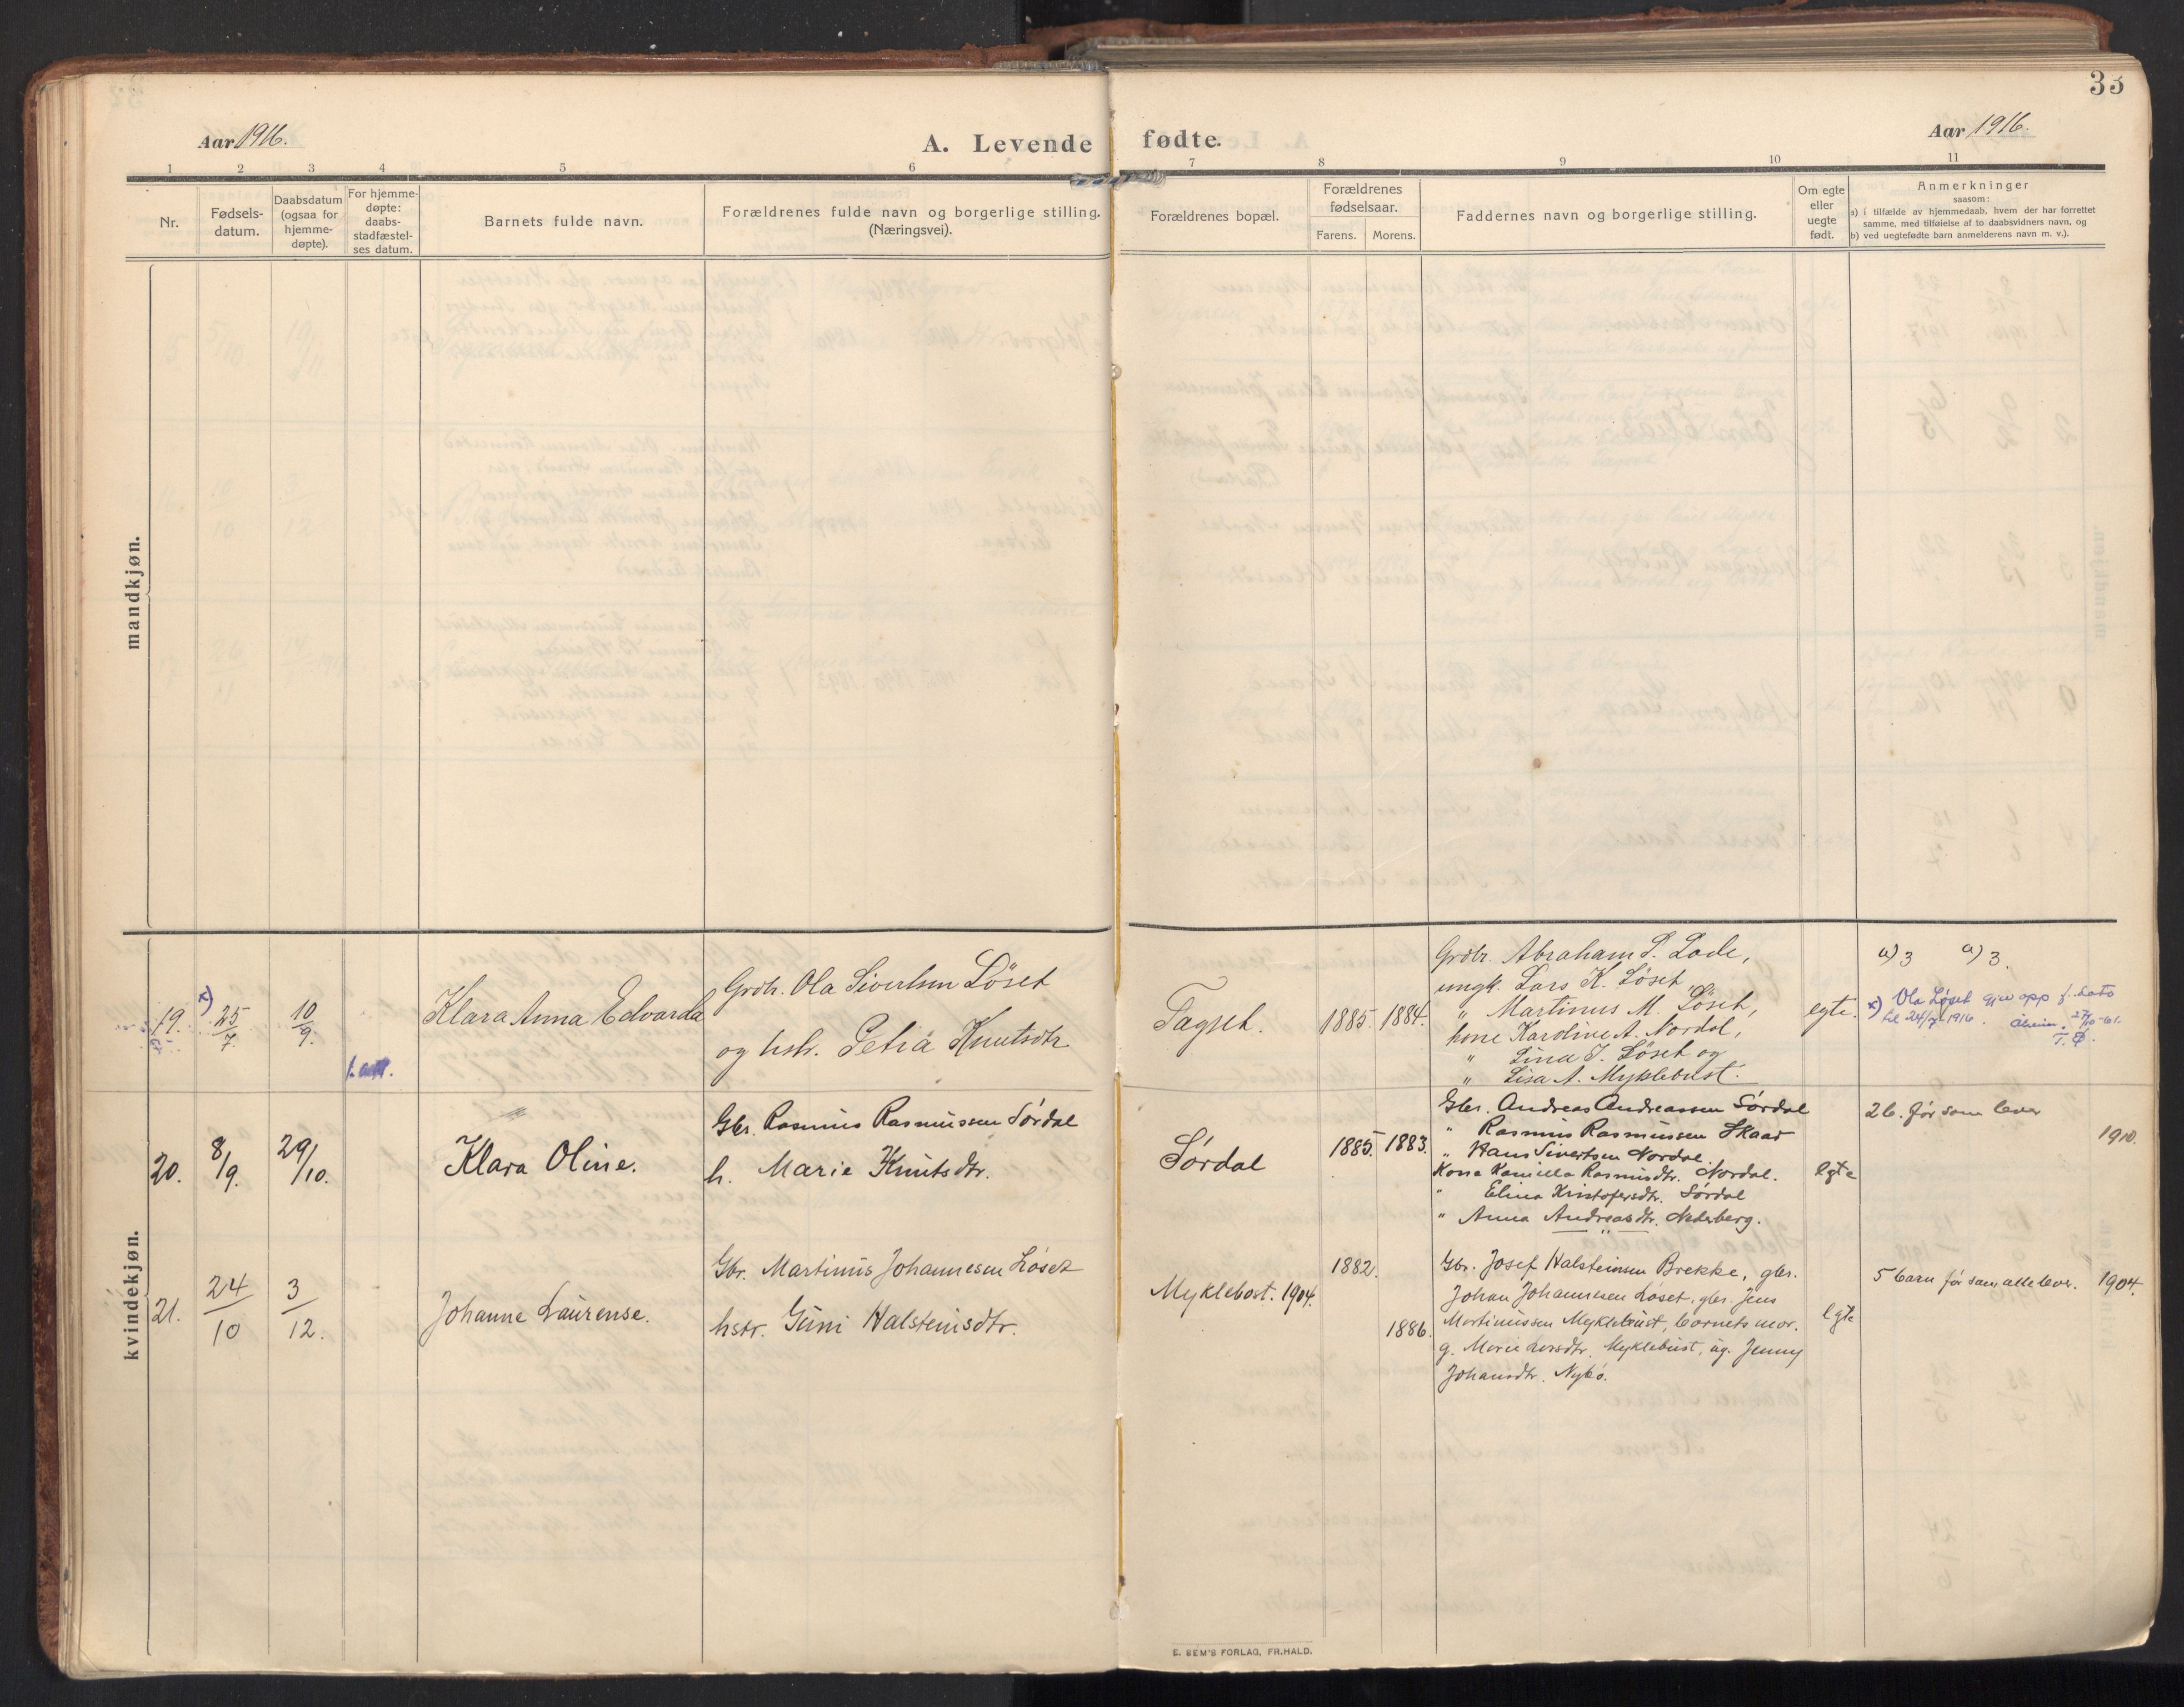 33
Aar 1916.
A. Levende fødte.
Aar 1916.
1 2 3 4 5 6 7 8 9 10 11
Nr.
Fødsels-
datum.
Daabsdatum
(ogsaa for
hjemme-
døpte).
For hjemme-
døpte:
daabs-
stadfæstel-
ses datum.
Barnets fulde navn.
Forældrenes fulde navn og borgerlige stilling.
(Næringsvei).
Forældrenes bopæl.
Forældrenes
fødselsaar.
Farens. Morens.
Faddernes navn og borgerlige stilling.
Om egte
eller
uegte
født.
Anmerkninger
saasom:
a) i tilfælde av hjemmedaab, hvem der har forrettet
samme, med tilføielse af to daabsvidners navn, og
b) ved uegtefødte barn anmelderens navn m. v.).
mandkjøn.
kvindekjøn.
19.
x) 25/7.
10/9.
Klara Anna Edvarda
Grdbr. Ola Sivertsen Löset
og hstr. Petra Knutsdtr
Tagset.
1885. 1884.
Grdbr. Abraham P. Lade,
ungk. Lars K. Löset,
" Martinus M. Löset,
kone Karoline A. Nordal,
" Lina J. Löset og
" Lisa A. Myklebust.
egte.
a) 3 a) 3.
x) Ola Løset gjev opp f. dato
til 24/7-1916. Åheim 27/10-61.
T. Ø.
20.
8/9.
29/10.
Klara Oline.
Gbr. Rasmus Rasmussen Sørdal
h. Marie Knutsdtr.
Sørdal
1885. 1883.
Gbr. Andreas Andreassen Sørdal
" Rasmus Rasmussen Skaar
" Hans Sivertsen Nordal.
Kone Kamilla Rasmusdtr. Nordal.
" Elina Kristofersdtr. Sørdal
" Anna Andreasdtr. Nederberg.
egte
2 b. før som lever
1910.
21.
24/10
3/12.
Johanne Laurense.
Gbr. Martinus Johannesen Løset
hstr. Guni Halsteinsdtr.
Myklebost. 1904.
1882.
1886.
Gbr. Josef Halsteinsen Brekke, gbr.
Johan Johannesen Løset, gbr. Jens
Martinussen Myklebust, barnets mor.
g. Marie Larsdtr. Myklebust, ug. Jenny
Johansdtr. Nybø.
egte
5 barn før som alle lever. 1904.
E. SEM'S FORLAG, FR.HALD.